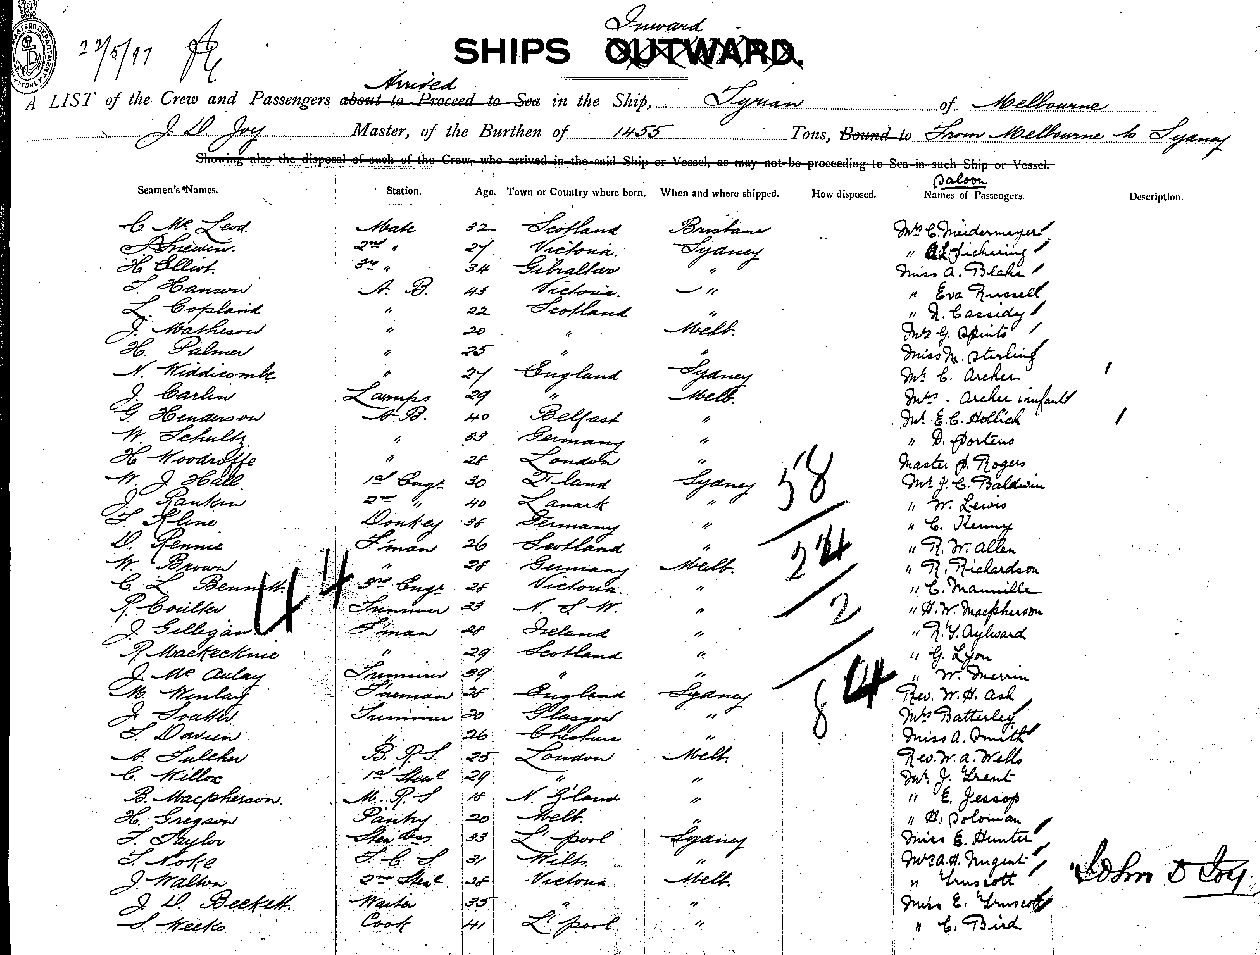 22/5/97
Inward
SHIPS OUTWARD.
Arrived
A LIST of the Crew and Passengers about to Proceed to Sea in the Ship, Tyrian of Melbourne
J D Joy Master, of the Burthen of 1455 Tons, Bound to From Melbourne to Sydney
Showing also the disposal of each of the Crew, who arrived in the said Ship or Vessel, as may not be proceeding to Sea in such Ship or Vessel.
Saloon
Seamen's Names. Station. Age. Town or Country where born. When and where shipped. How disposed. Names of Passengers. Description.
C Mc Leod Mate 32 Scotland Brisbane Mr C. Neidermeyer
2nd " 27 Victoria. Sydney " Pickering
H Elliot. 3rd " 34 Gibraltar " Miss A. Blake
T Hanson A. B. 45 Victoria. " " Eva Russell
L. Copland " 22 Scotland " " N. Cassidy
J. Matheson " 20 " Melb. Mrs G. Spinks
H. Palmer " 25 " " Miss M. Sterling
N. Widdicombe " 27 England Sydney Mr C. Archer
J. Carlin Lamps 29 " Melb. Mrs. Archer infant
G Henderson A. B. 40 Belfast " Mr E.C. Hollich
W. Schultz " 33 Germany " " D. Porteus
H Woodroffe " 28 London " Master S. Rogers
W. J Hall 1st Engr 30 Z'land Sydney Mr J. C. Baldwin
J Rankin 2nd " 40 Lanark " " W. Lewis
T Kline Donkey 38 Germany " " C. Kenny
D. Rennie F'man 26 Scotland " " R. W. Allen
W. Brown " 28 Germany Melb. " R. Richardson
C. L Bennett 3rd Engr 28 Victoria " " C. Manville
R Coulter Trimmer 23 N. S. W. " " H. W. Macpherson
J. Gilligan F'man 28 Ireland " " R. Y. Aylward
R Mackecknie " 29 Scotland " " G. Lyon
J. Mc Aulay Trimmer 39 " " " W. Merrin
Fireman 28 England Sydney Rev. W. H. Ash
J. Trimmer 20 Glasgow " Mrs Batterley
T. " 26 Cheshire " Miss A. Smith
A. Fulcher B. R. S. 25 London Melb. Rev. W. A. Wells
C. Willox 1st Stewd 29 " " Mr J. Trent
B. Macpherson. M. R S 18 N. Z'land " " E. Jessop
H. Gregson Pantry 20 Melb. " " H. Soloman
T. Taylor Stewdess 33 L'pool Sydney Miss E. Hunter
T. Noke F. C. S. 31 Wilts. " Mrs A. H. Nugent
J Walton 2nd Stewd 28 Victoria Melb. " Truscott
J. D. Beckett. Waiter 35 " " Miss E. Truscott
S. Weeks Cook 41 L'pool " " C. Bird
44
58
24
2
84
John D Joy